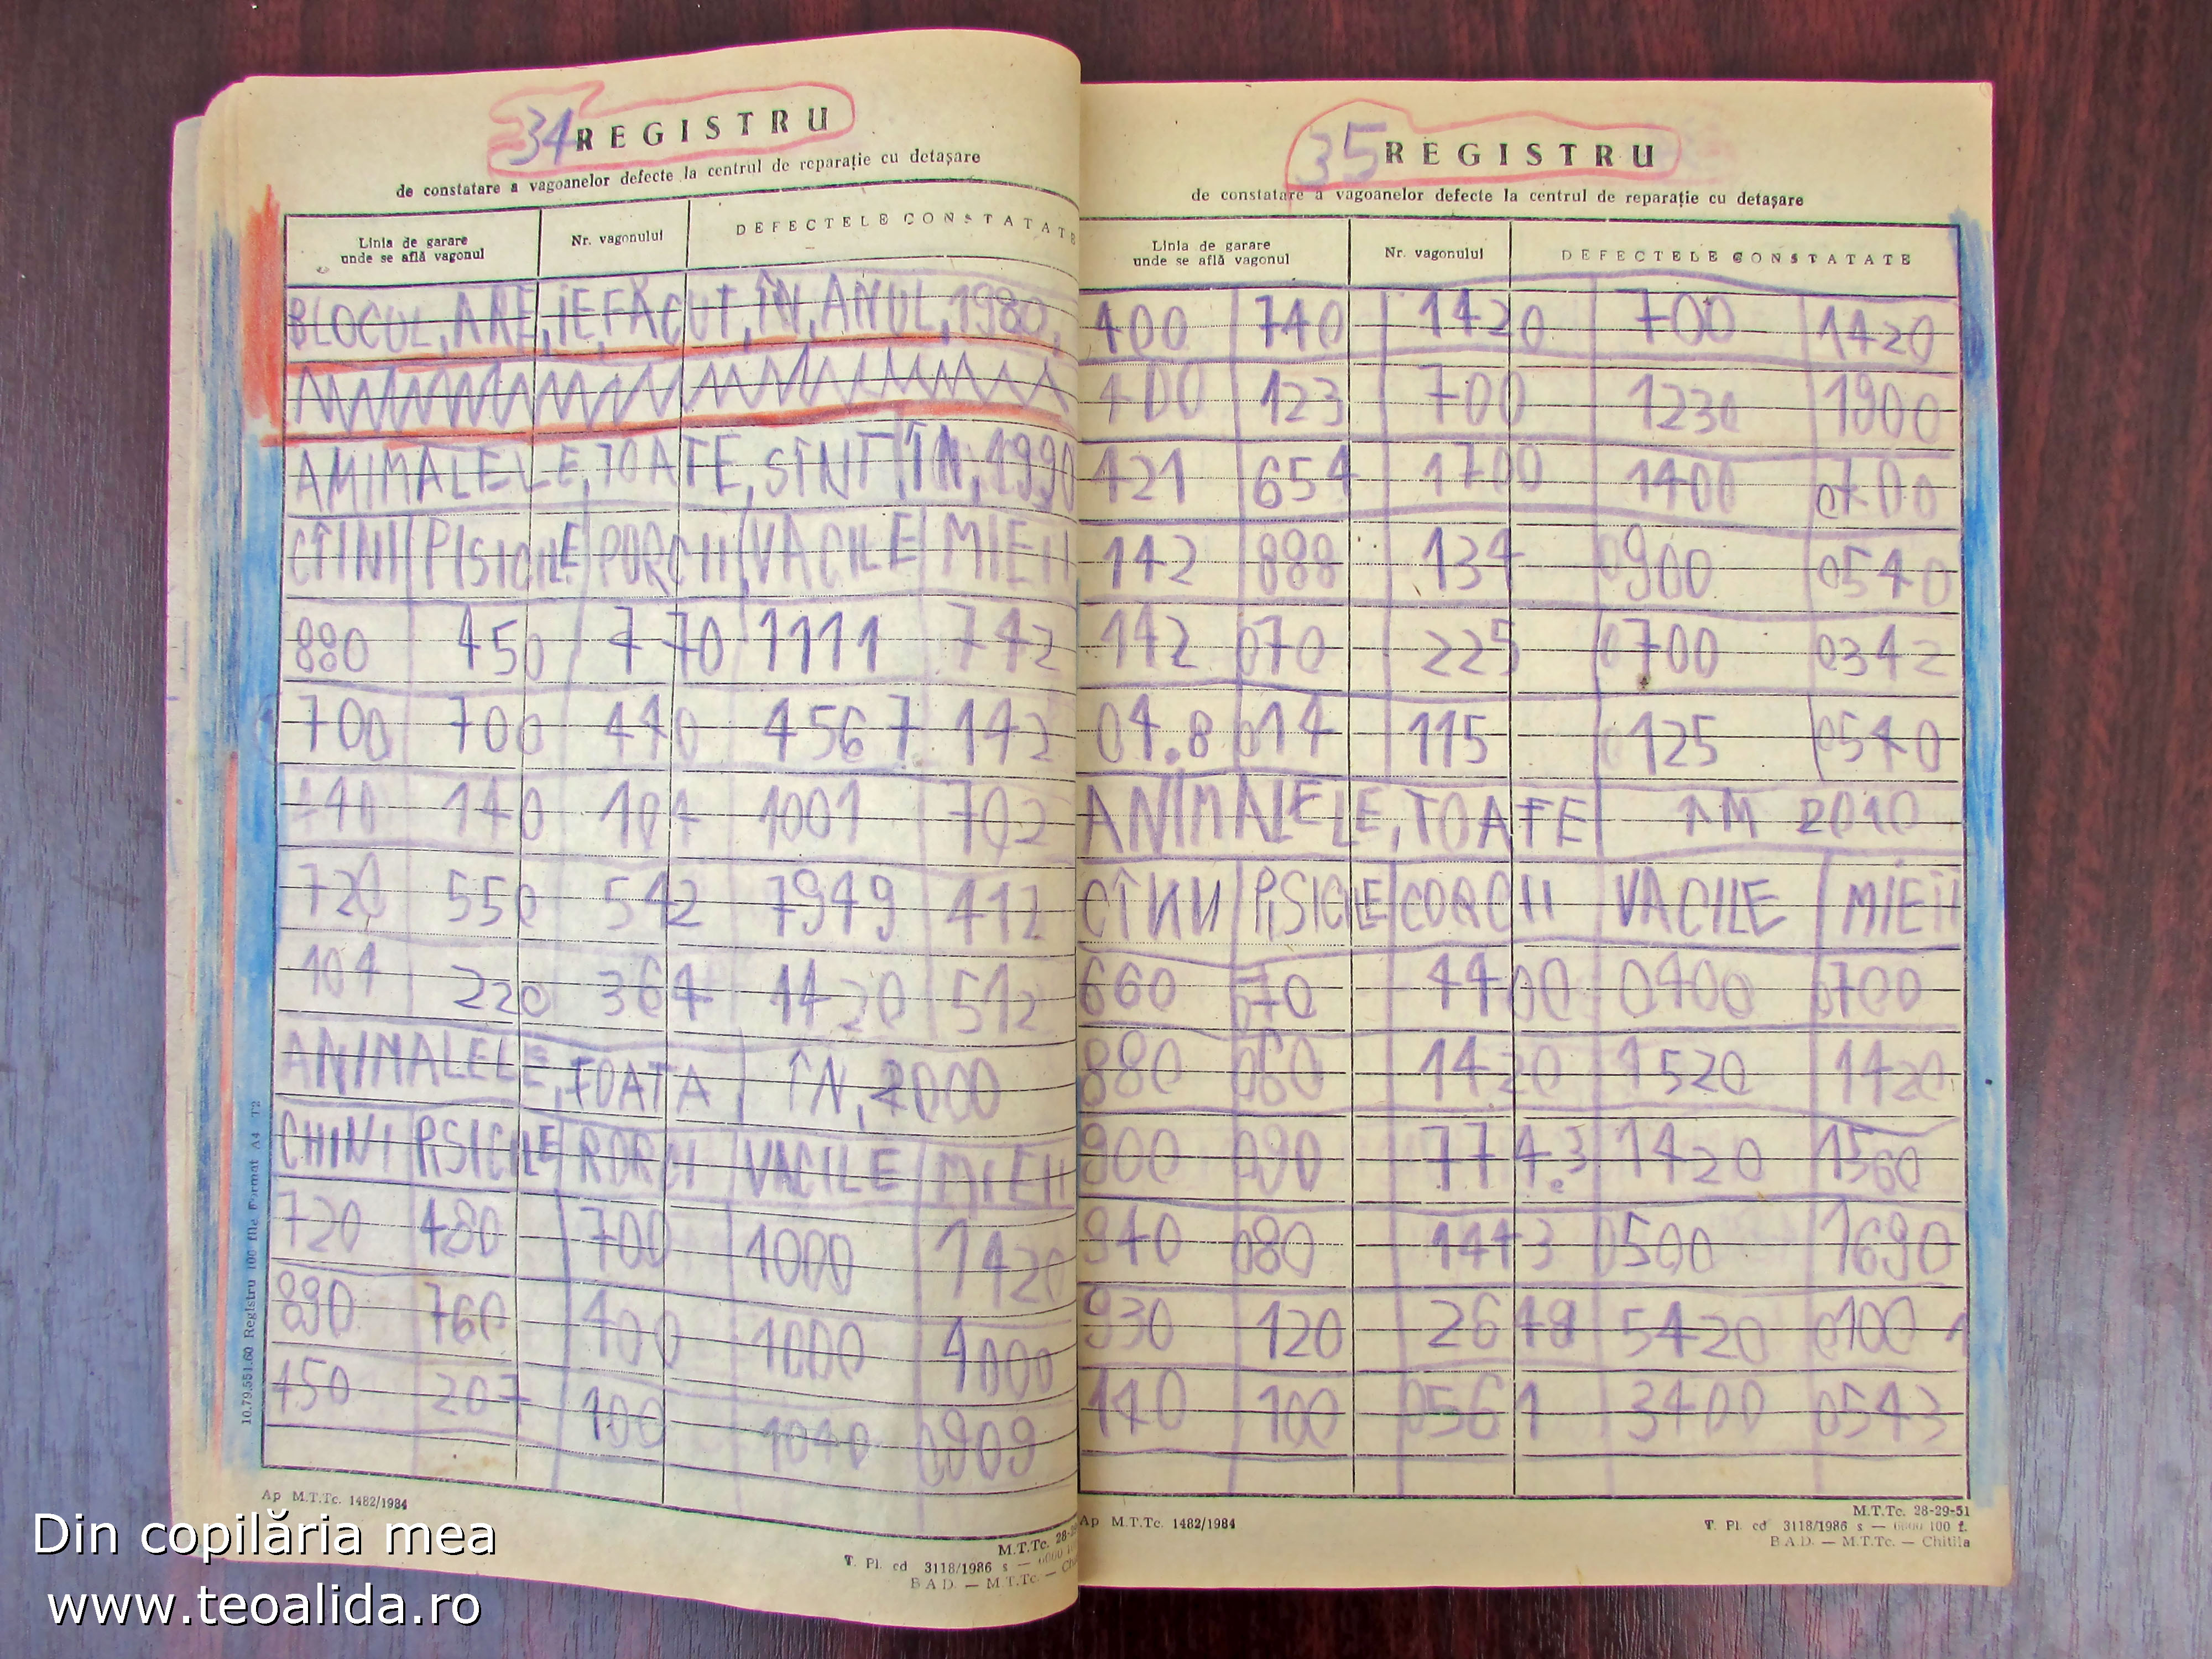 34 REGISTRU
de constatare a vagoanelor defecte la centrul de reparație cu detașare
Linia de garare unde se află vagonul Nr. vagonului DEFECTELE CONSTATATE
BLOCUL, ARE, IE, FĂCUT, ÎN, ANUL, 1980,
AMIMALELE, TOATE, SÎNT, ÎN, 1990
CÎINI PISICILE PORCII VACILE MIEII
880 450 770 1111 742
700 700 440 4567 142
440 140 104 1001 702
720 550 542 7949 412
104 220 364 1420 512
ANIMALELE, TOATA ÎN, 2000
CHINI PISICILE RORCII VACILE MIEII
720 480 700 1000 1420
890 760 400 1000 1000
450 207 100 1040 0909
10.79.551.60 Registru 100 file Format A4 T2
Ap M.T.Tc. 1482/1984
M.T.Tc. 28-29
T. Pl. cd 3118/1986 s — 6000
B.A.D. — M.T.Tc. —
35 REGISTRU
de constatare a vagoanelor defecte la centrul de reparație cu detașare
Linia de garare unde se află vagonul Nr. vagonului DEFECTELE CONSTATATE
400 740 1420 700 1420
400 123 700 1230 1900
421 654 1700 1400 0700
142 888 134 0900 0540
142 070 225 0700 0342
04.8 014 115 0125 0540
ANIMALELE, TOATE ÎM 2010
CÎINII PISICILE CORCII VACILE MIEII
660 070 4400 0400 0700
880 060 1420 1520 1420
900 090 774.3 1420 1560
940 080 1443 0500 1690
930 120 2648 5420 0100
140 100 0561 3400 0543
Ap M.T.Tc. 1482/1984
M.T.Tc. 28-29-51
T. Pl. cd 3118/1986 s — 6000 100 f.
B.A.D. — M.T.Tc. — Chitila
Din copilăria mea
www.teoalida.ro